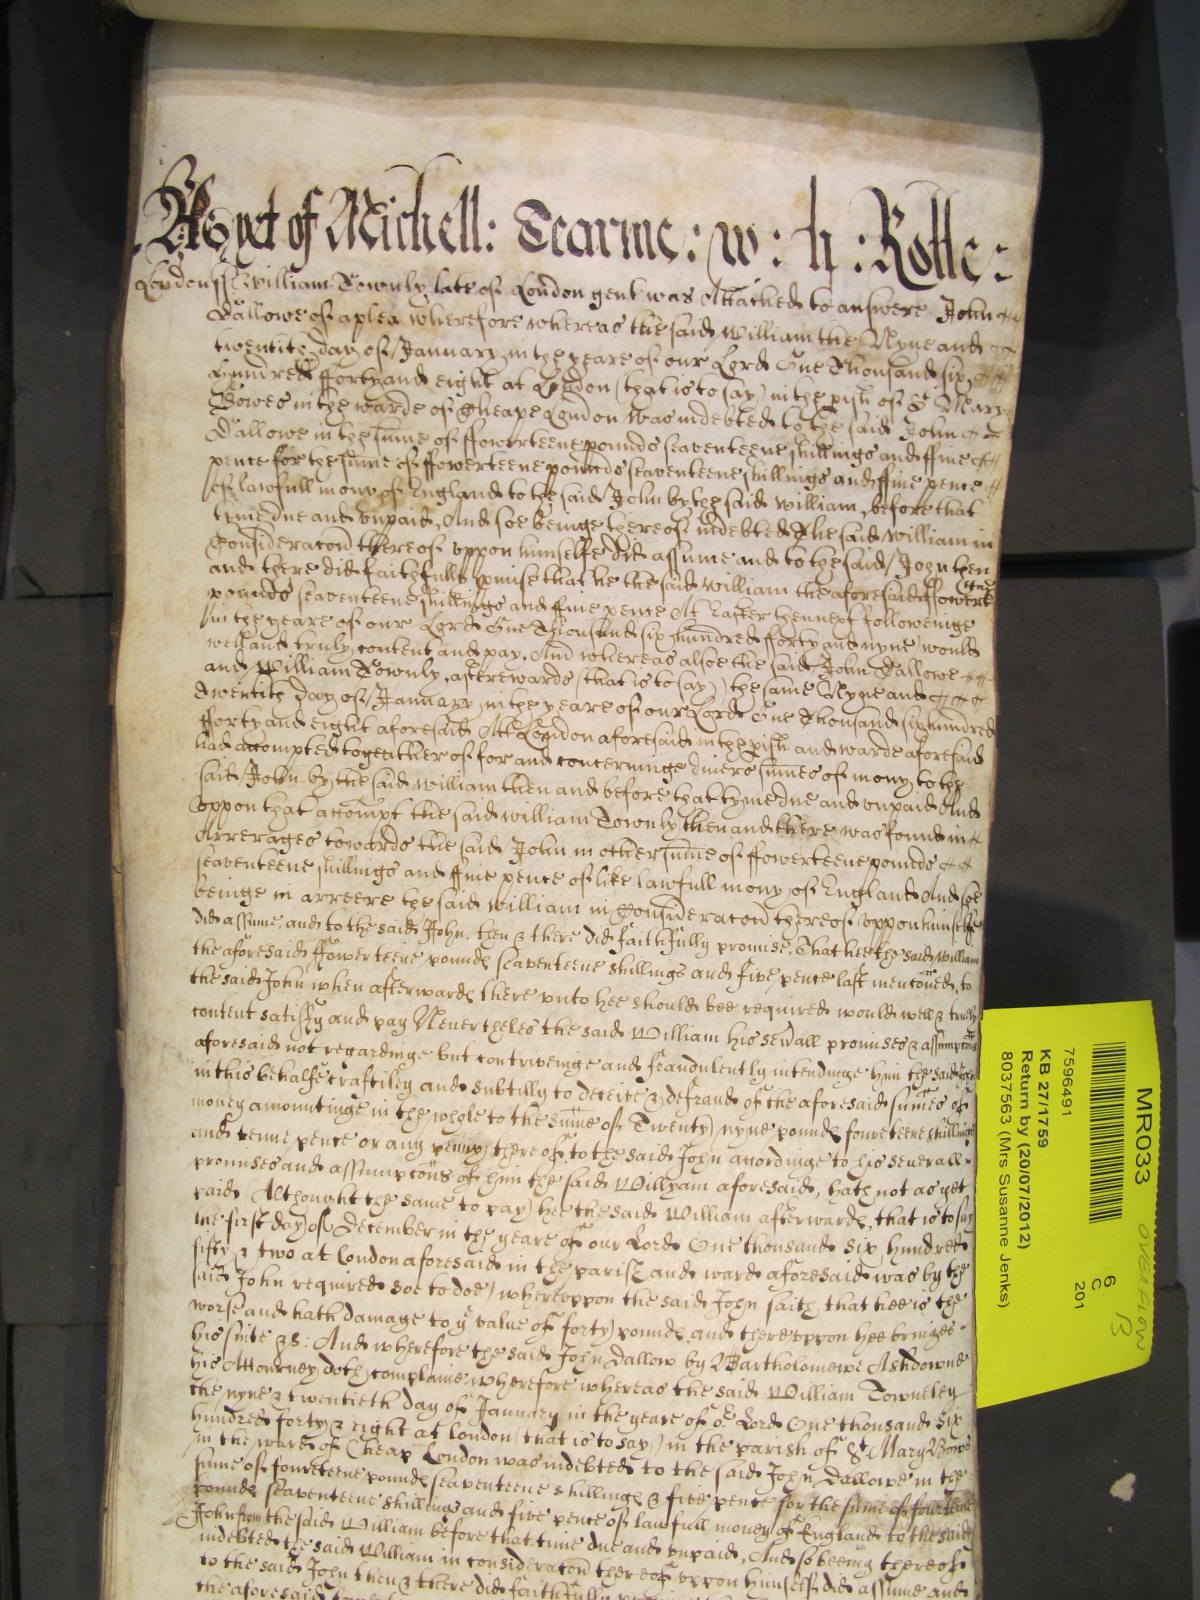 As yet of Michell: Tearme: w: th: Rolle:
London ss William Townly late of London gent was Attached to answere John
Dallowe of a plea wherefore whereas the said William the Nyne and
twentith day of January in the yeare of our Lord One Thousand six
hundred fforty and eight at London (that is to say) in the pish of St Mary
Bowes in the warde of Cheape London was indebted to the said John
Dallowe in the sume of ffowerteene pounds seaventeene shillings and ffive
pence for the sume of ffowerteene pounds seaventeene shillings and ffive pence
of lawfull mony of England to the said John by the said William before that
tyme due and unpaid, And soe beinge thereof indebted The said William in
Consideracon thereof uppon himselfe did assume and to the said John then
and there did faithfully pmise that he the said William the aforesaid ffowerteene
pounds seaventeene shillings and ffive pence At Easter then next followeinge
in the yeare of our Lord One Thousand six hundred fforty and nyne would
well and truly content and pay. And whereas alsoe the said John Dallowe
and William Townly, afterewards (that is to say) the same Nyne and
twentith day of January in the yeare of our Lord One Thousand six hundred
fforty and eight aforesaid Att London aforesaid in the pish and warde aforesaid
had accompted togeather of for and concerninge divers sumes of mony to the
said John by the said William then and before that tyme due and unpaid And
uppon that accompt the said William Townly then and there was found in
Arrerages towards the said John in other sume of ffowerteene pounds
seaventeene shillings and ffive pence of like lawfull mony of England And soe
beinge in arreere the said William in Consideracon thereof uppon himselfe
did assume, and to the said John, then & there did faithfully promise, That hee the said William
the aforesaid ffowerteene pounds seaventeene shillings and five pence last menconed, to
the said John when afterwards there unto hee should bee required would well & truely
content satisfy and pay Neverthelesse the said William his sevall promises & assumpcons
aforesaid not regardinge but contriveinge and fraudulently intendinge him the said John
in this behalfe craftiley and subtilly to deceite & defraud of the aforesaid sumes of
money amountinge in the whole to the sume of Twenty nyne pounds foureteene shillings
and tenne pence or any penny thereof to the said John accordinge to his severall
promises and assumpcons of him the said Willyam aforesaid, hath not as yet
paid (Althought the same to pay) hee the said William afterwards, that is to say
the first day of December in the yeare of our Lord One thousand six hundred
fifty & two at London aforesaid in the parish and ward aforesaid was by the
said John required soe to doe) whereuppon the said John saith that hee is the
worse and hath damage to ye value of forty pounds and thereuppon hee bringes
his suite &c: And wherefore the said John Dallow by Bartholomewe Ashdowne
his Attourney doth complaine wherefore whereas the said William Towneley
the nyne & twentieth day of January in the yeare of or Lord One thousand six
hundred forty & eight at London (that is to say) in the parish of St Mary Bowe
in the ward of Cheap London was indebted to the said John Dallowe in the
sume of foureteene pounds seaventeene shillings & five pence for the sume of foureteene
pounds seaventeene shillings and five pence of lawfull money of England to the said
John from the said William before that time due and unpaid, And so beeing thereof
indebted the said William in consideracon thereof uppon himselfe did assume and
to the said John then & there did faithfully
the aforesaid
MR033
OVERFLOW
13
6
C
201
7596491
KB 27/1759
Return by (20/07/2012)
8037563 (Mrs Susanne Jenks)